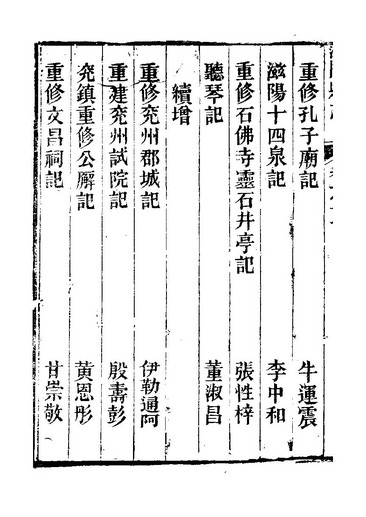 重修孔子廟記 牛運震
滋陽十四泉記 李中和
重修石佛寺靈石井亭記 張性梓
聽琴記 董淑昌
續增
重修兖州郡城記 伊勒通阿
重建兖州試院記 殷壽彭
兖鎮重修公廨記 黃恩彤
重修文昌祠記 甘崇敬